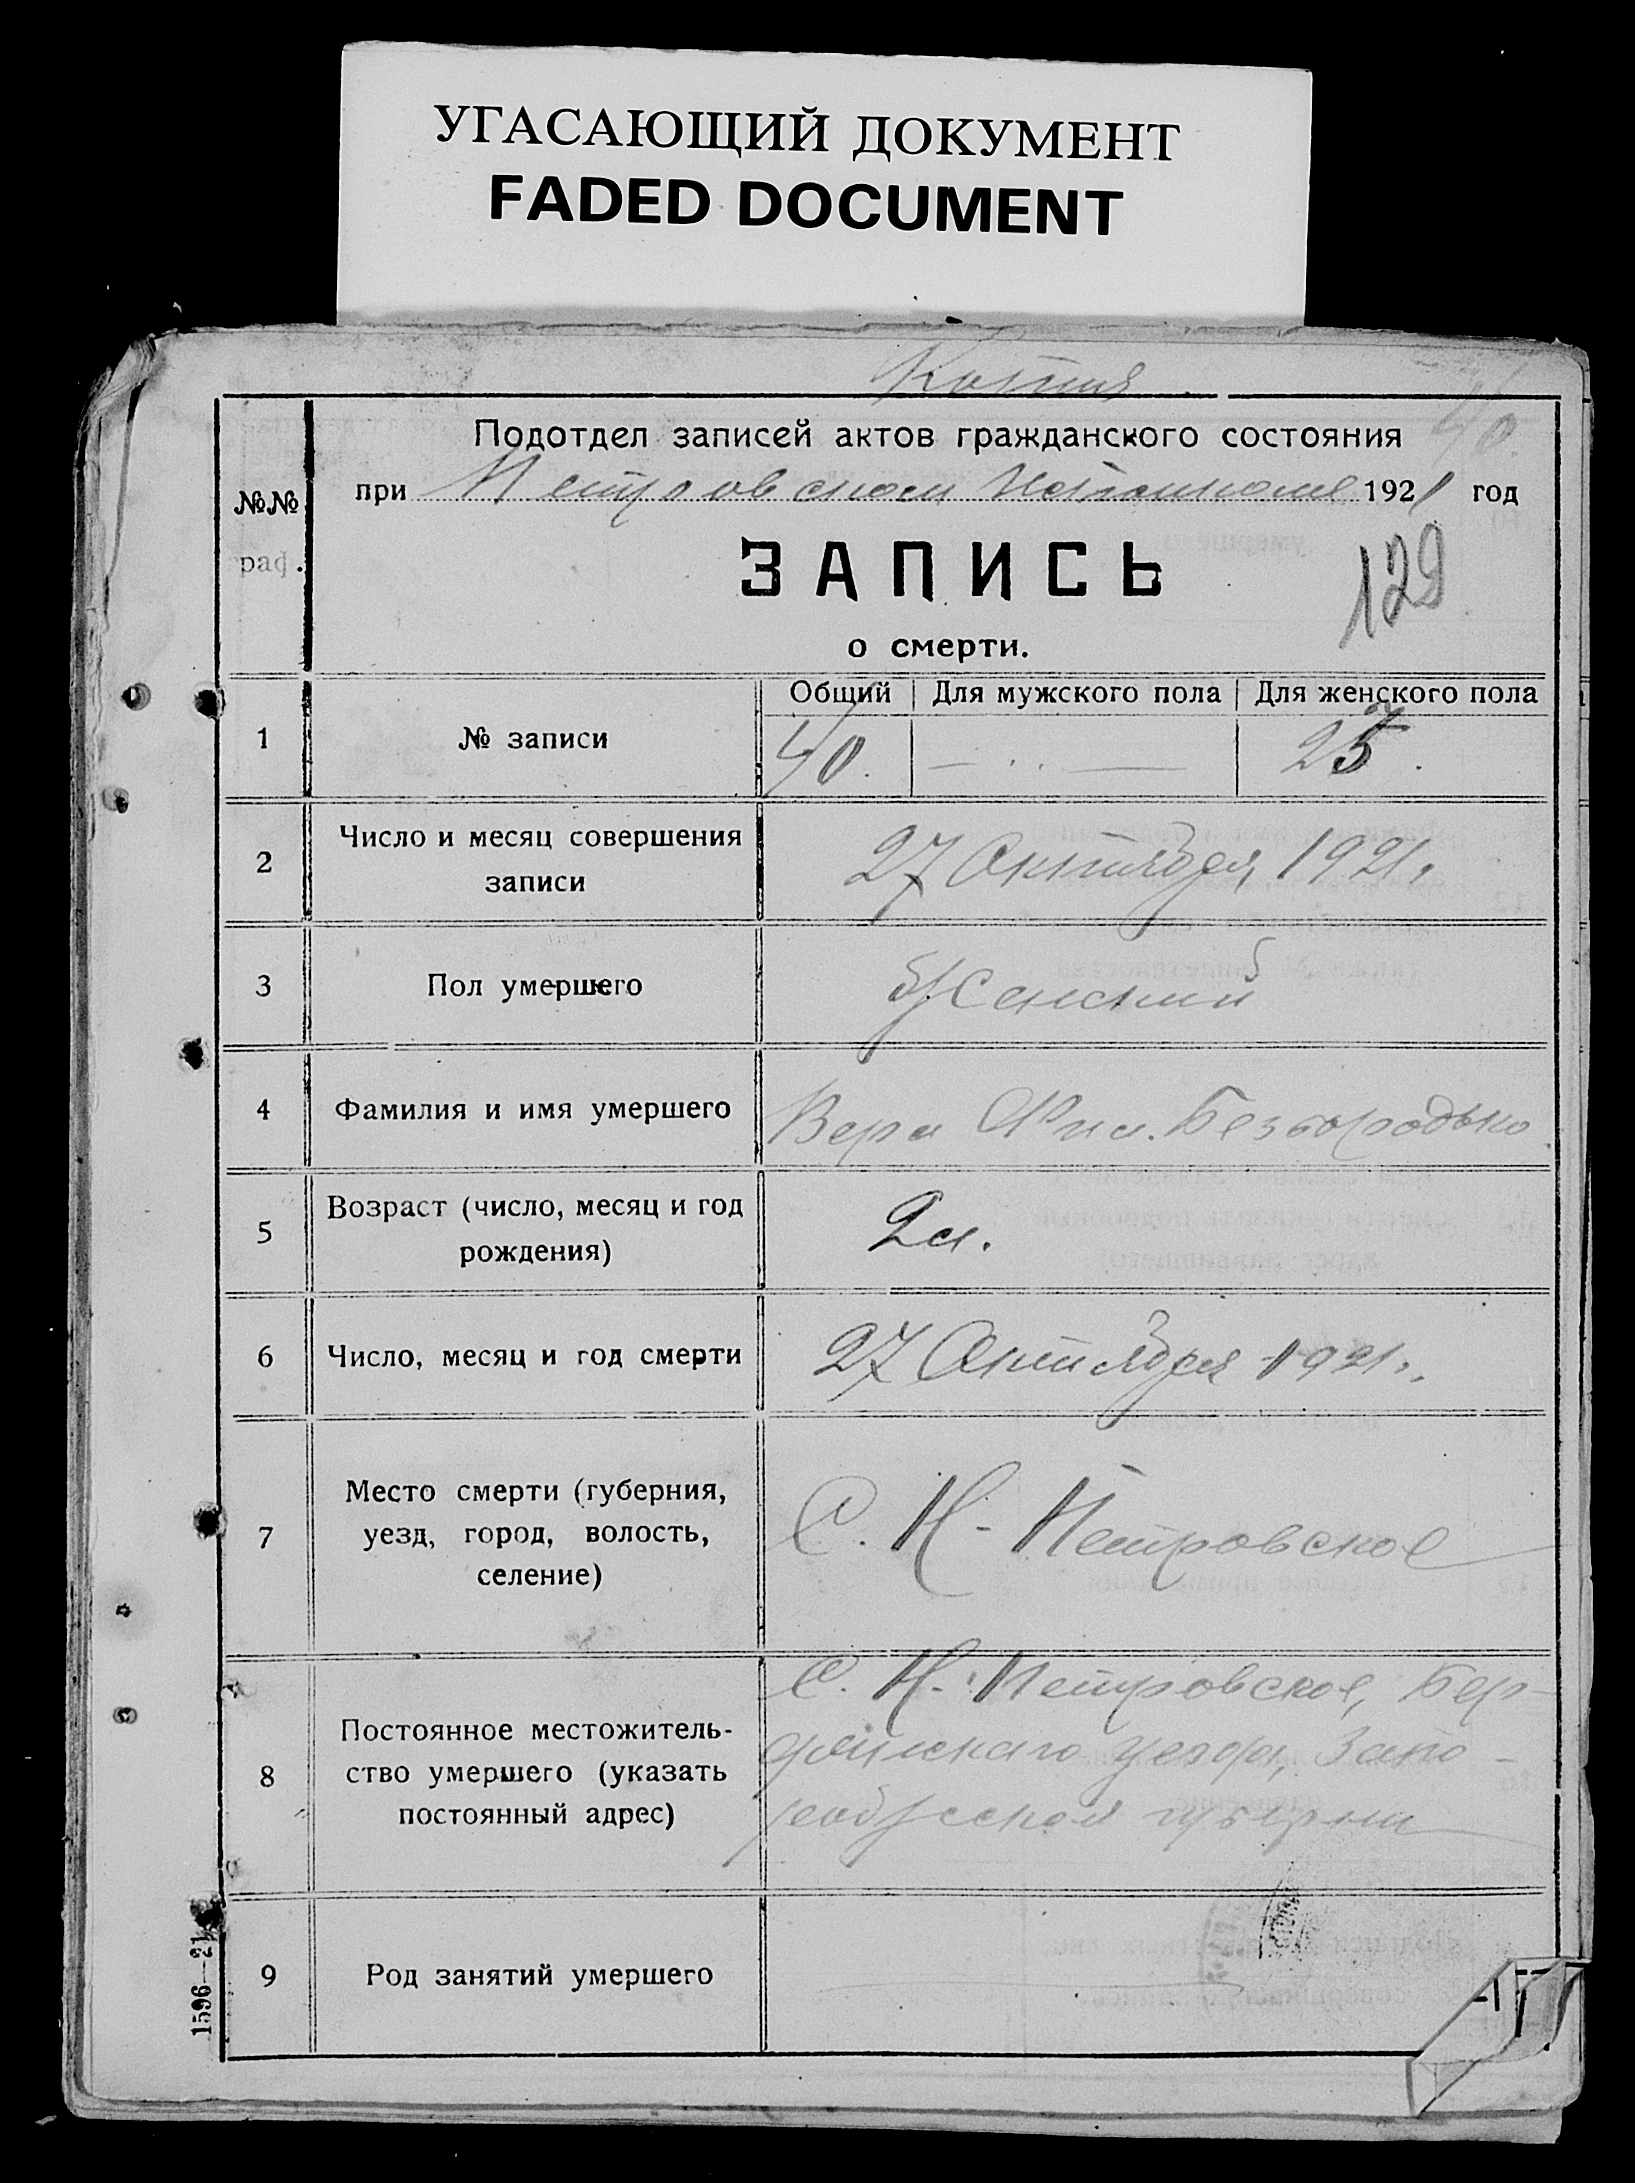 УГАСАЮЩИЙ ДОКУМЕНТ
FADED DOCUMENT
Копия
40.
Подотдел записей актов гражданского состояния
при Петровском Исполкоме 1921 год
№№ раф.
ЗАПИСЬ
129
о смерти.
Общий Для мужского пола Для женского пола
1 № записи 40. — .. — 25.
2 Число и месяц совершения
записи 27 Октября, 1921.
3 Пол умершего Женский
4 Фамилия и имя умершего Вера Безбородько.
5 Возраст (число, месяц и год
рождения) 2
6 Число, месяц и год смерти 27 Октября 1921.
7 Место смерти (губерния,
уезд, город, волость,
селение) С. Н-Петровское
8 Постоянное местожитель-
ство умершего (указать
постоянный адрес)
С. Н-Петровское, Бер-
дянскаго уезда, Запо-
рожской губерни
9 Род занятий умершего
1596—21